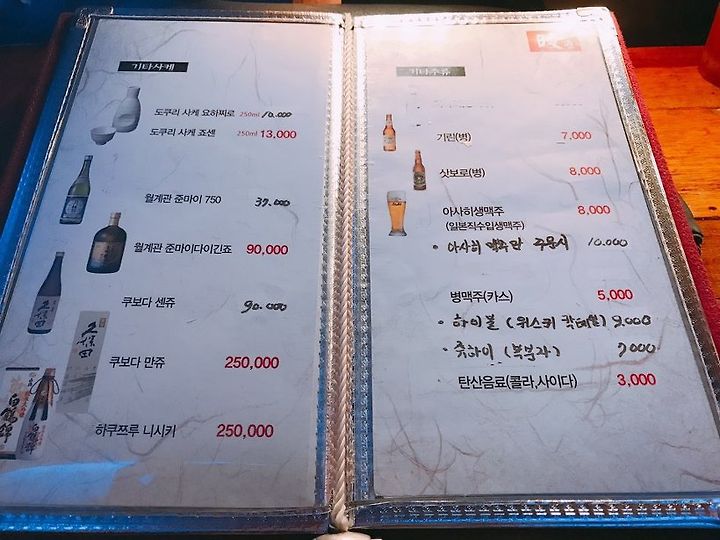 기타사케
도쿠리 사케 요하찌로 250ml 10.000
도쿠리 사케 죠센 250ml 13,000
월계관 준마이 750 37.000
월계관 준마이다이긴죠 90,000
쿠보다 센쥬 90.000
쿠보다 만쥬 250,000
하쿠쯔루 니시키 250,000
久保田
白鶴錦
기타주류
기린(병) 7,000
삿보로(병) 8,000
아사히생맥주 8,000
(일본직수입생맥주)
• 아사히 맥주만 주문시 10.000
병맥주(카스) 5,000
• 하이볼 (위스키 칵테일) 9.000
• 츄하이 (복분자) 7000
탄산음료(콜라,사이다) 3,000